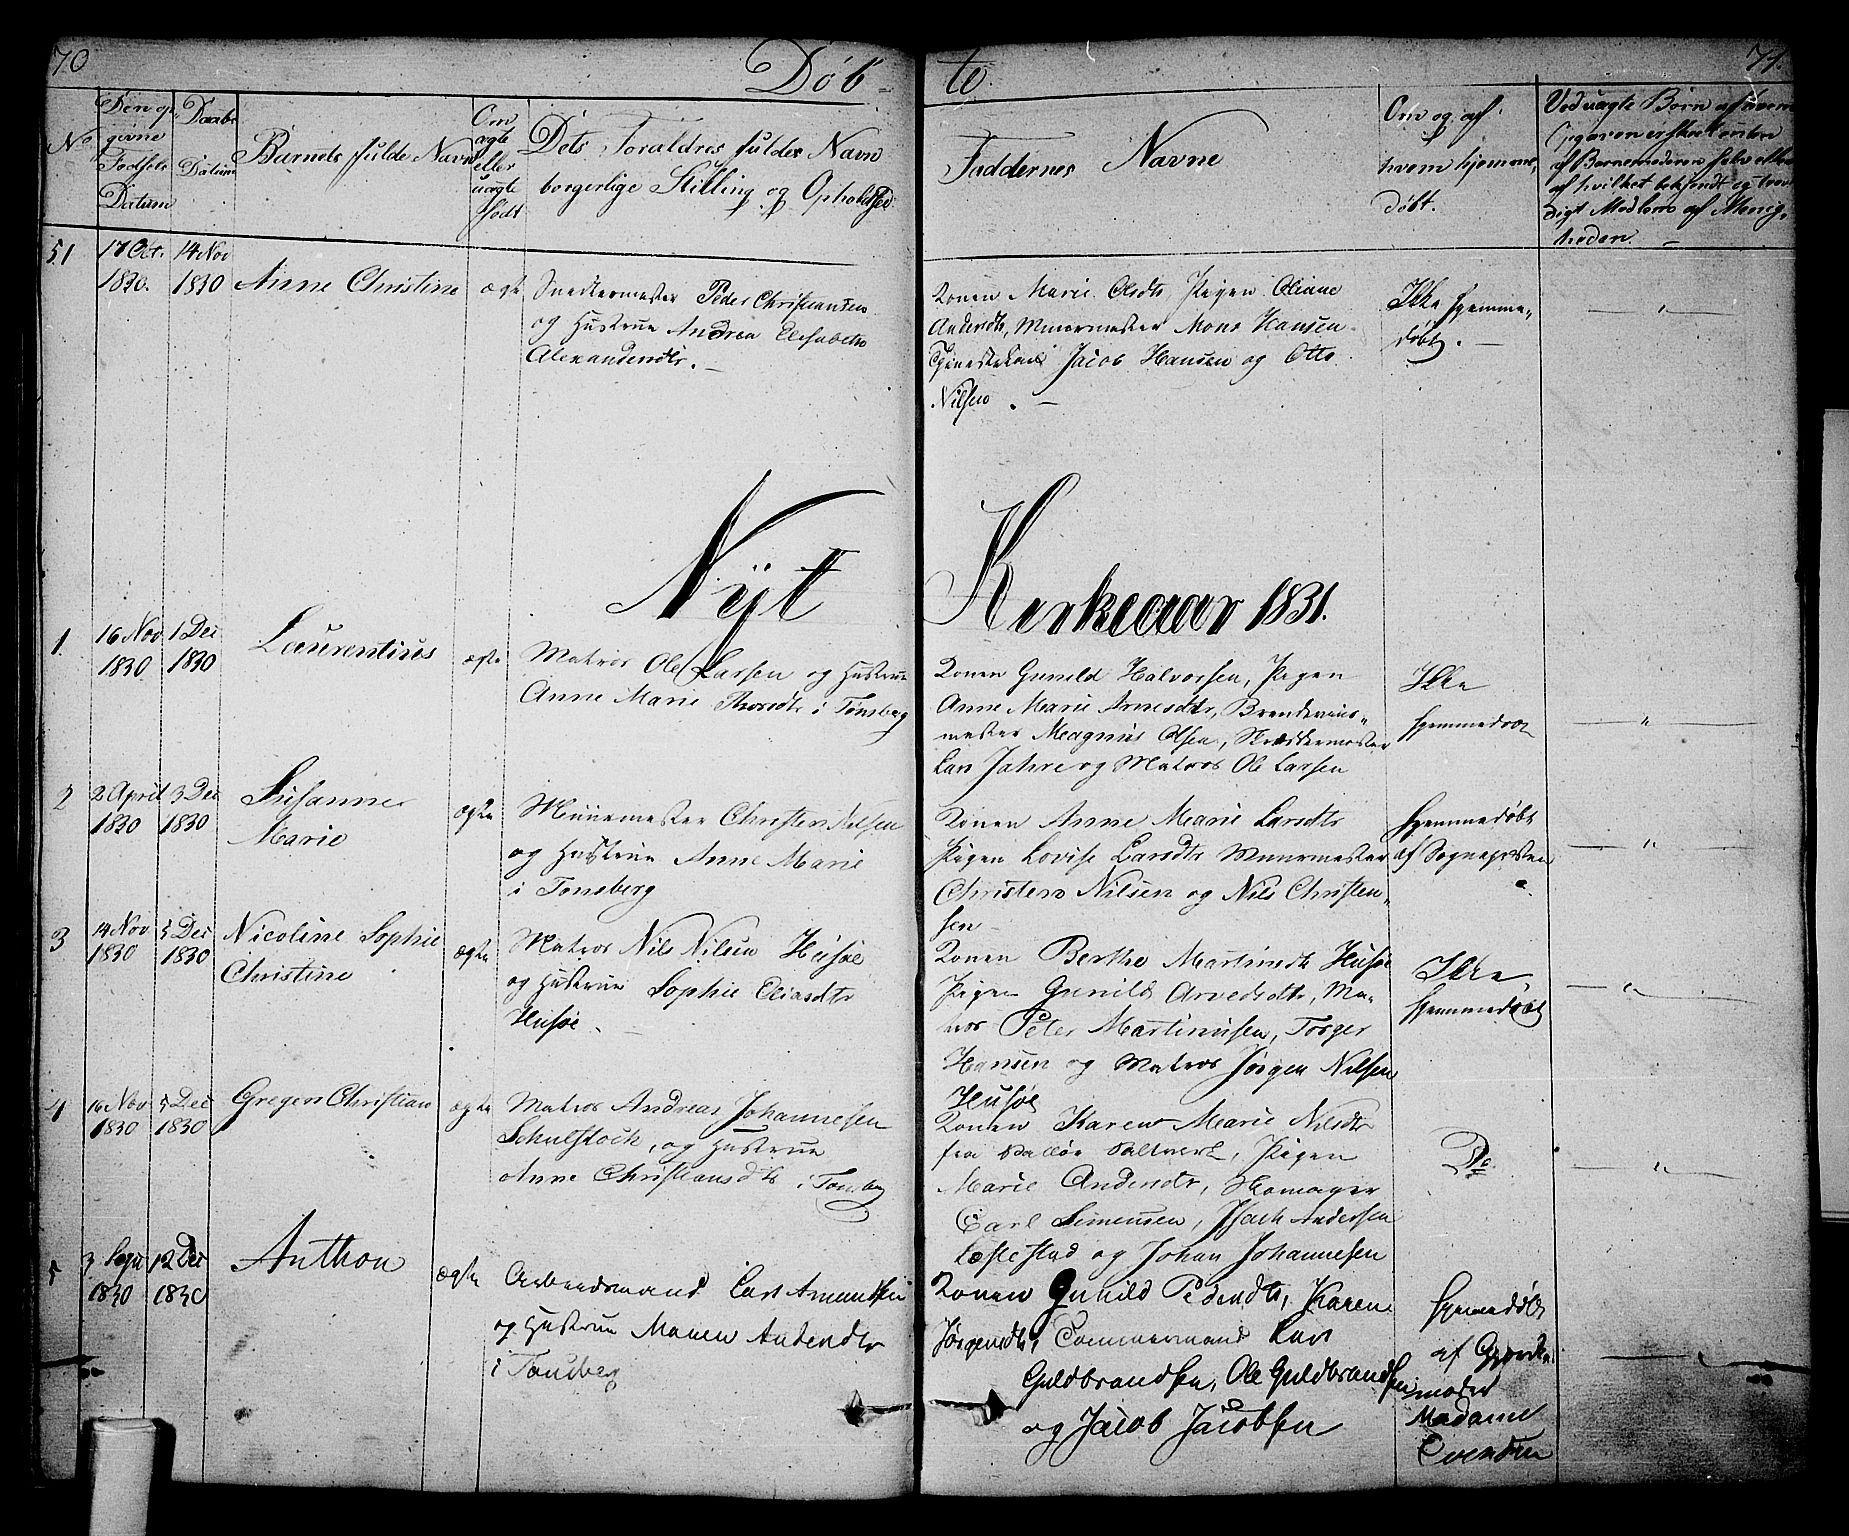 70
Døb-
te
71.
No
Den op-
givne
Fødsels
Datum
Daabs
Datum
Barnets fulde Navn
Om
ægte
eller
uægte
født
Dets Forældres fulde Navn
borgerlige Stilling og Opholdsted
Faddernes Navne
Om og af
hvem hjemme-
døbt.
Ved uægte Børn af hvem
Opgaven er skeet enten
af Barnemoderen selv eller
af hvilket bekjendt og trov-
digt Medlem af Menig-
heden.
51
17 Oct.
1830.
14 Nov
1830
Anne Christine
ægte
Snedkermester Peder Christiansen
og Hustrue Andrea Elisabeth
Alexandersdtr.
Konen Marie Olsdtr, Pigen Oliane
Andersdtr, Muurmester Mons Hansen
Tjenestekarl Jacob Hansen og Otto
Nilsen.
Ikke hjemme-
døbt.
Nyt Kirkeaar 1831.
1.
16 Nov
1830
1 Dec
1830
Laurentius
ægte
Matros Ole Larsen og Hustrue
Anne Marie Thorsdtr i Tønsberg
Konen Gunild Halvorsen, Pigen
Anne Marie Arnesdtr, Brendeviins-
mester Magnus Olsen, Skræddermester
Lars Jahre og Matros Ole Larsen
Ikke
hjemmedøbt
2
2 April
1830
3 Dec
1830
Susanne
Marie
ægte
Muurmester Christen Nilsen
og Hustrue Anne Marie
i Tønsberg
Konen Anne Marie Larsdtr
Pigen Lovise Larsdtr Muurmester
Christen Nilsen og Nils Christen-
sen
Hjemmedøbt
af Sognepresten
3
14 Nov
1830
5 Dec
1830
Nicoline Sophie
Christine
ægte
Matros Nils Nilsen Husøe
og Hustrue Sophie Eliasdtr
Husøe.
Konen Berthe Martinsdtr Husøe
Pigen Gunild Arvedsdtr, Ma-
tros Peter Martinusen, Torger
Hansen og Matros Jørgen Nilsen
Husøe
Ikke
hjemmedøbt
4
16 Nov
1830
5 Dec
1830
Gregers Christian
ægte
Matros Andreas Johannesen
Schulstock, og Hustrue
Anne Christiansdtr i Tønsberg
Konen Karen Marie Nilsdtr
fra Valløe Saltverk, Pigen
Marie Andersdtr, Homager
Carl Simensen, Isach Andersen
Tæstestad og Johan Johannesen
Do
5
3 Sept
1830
12 Dec
1830
Anthon
ægte
Arbeidsmand Lars Amundsen
og Hustrue Maren Andersdtr
i Tønsberg
Konen Gunild Pedersdtr, Karen
Jørgensdtr, Tømmermand Lars
Guldbrandsen, Ole Guldbrandsen
og Jacob Jacobsen
Hjemmedøbt
af Gjorde-
moder
Madame
Evensen